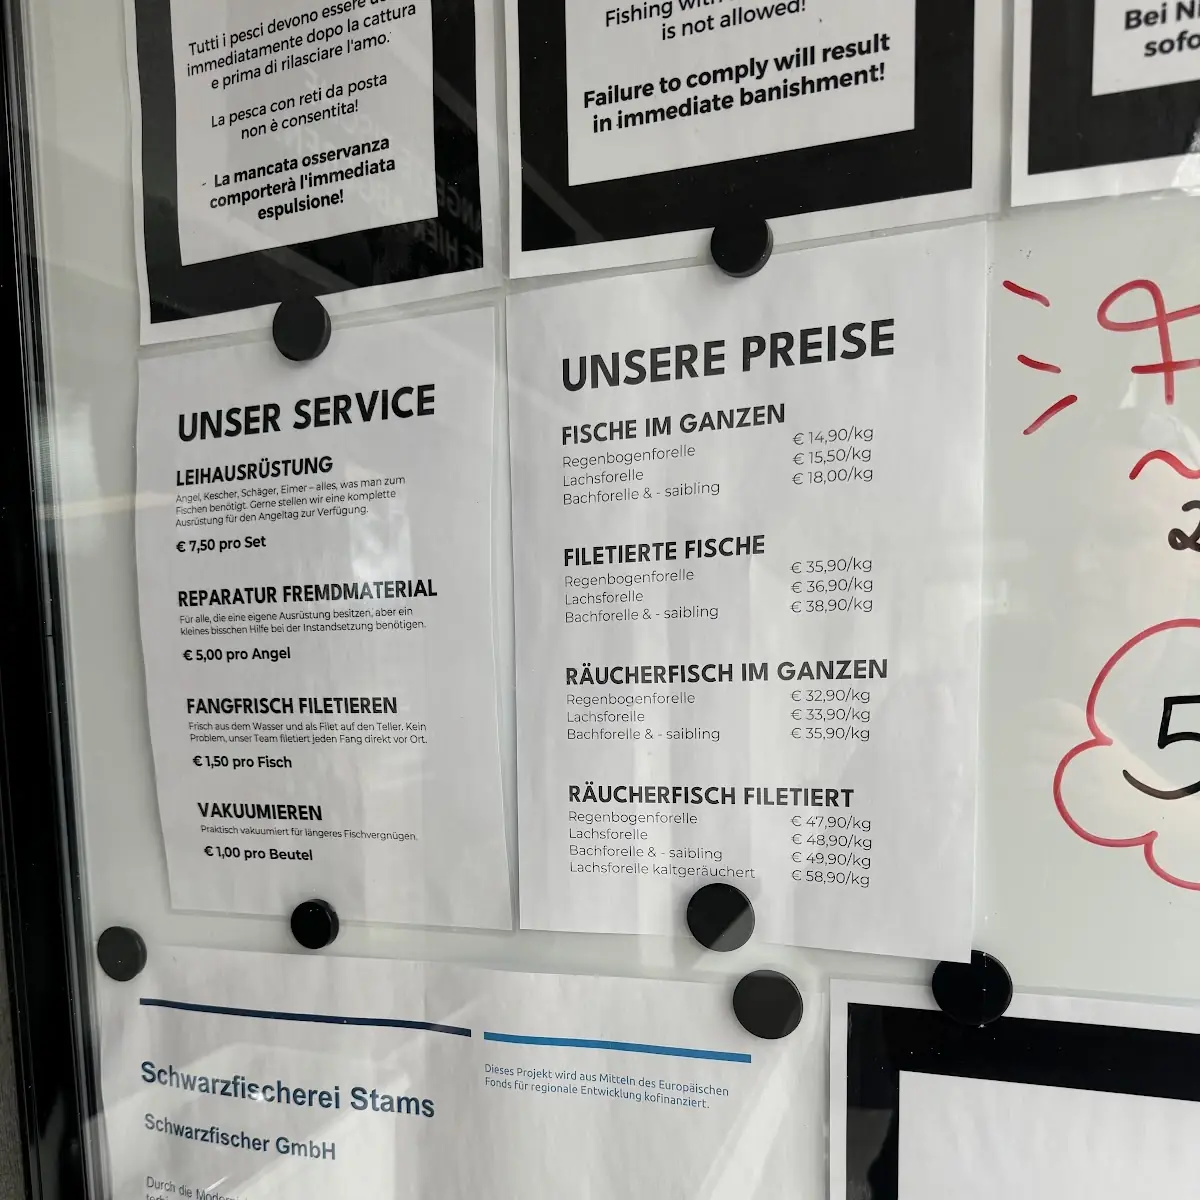 Tutti i pesci devono essere
immediatamente dopo la cattura
e prima di rilasciare l'amo.
La pesca con reti da posta
non è consentita!
La mancata osservanza
comporterà l'immediata
espulsione!
Fishing with
is not allowed!
Failure to comply will result
in immediate banishment!
Bei
sofo
UNSER SERVICE
LEIHAUSRÜSTUNG
Angel, Kescher, Schäger, Eimer – alles, was man zum
Fischen benötigt. Gerne stellen wir eine komplette
Ausrüstung für den Angeltag zur Verfügung.
€ 7,50 pro Set
REPARATUR FREMDMATERIAL
Für alle, die eine eigene Ausrüstung besitzen, aber ein
kleines bisschen Hilfe bei der Instandsetzung benötigen.
€ 5,00 pro Angel
FANGFRISCH FILETIEREN
Frisch aus dem Wasser und als Filet auf den Teller. Kein
Problem, unser Team filetiert jeden Fang direkt vor Ort.
€ 1,50 pro Fisch
VAKUUMIEREN
Praktisch vakuumiert für längeres Fischvergnügen.
€ 1,00 pro Beutel
UNSERE PREISE
FISCHE IM GANZEN
Regenbogenforelle € 14,90/kg
Lachsforelle € 15,50/kg
Bachforelle & - saibling € 18,00/kg
FILETIERTE FISCHE
Regenbogenforelle € 35,90/kg
Lachsforelle € 36,90/kg
Bachforelle & - saibling € 38,90/kg
RÄUCHERFISCH IM GANZEN
Regenbogenforelle € 32,90/kg
Lachsforelle € 33,90/kg
Bachforelle & - saibling € 35,90/kg
RÄUCHERFISCH FILETIERT
Regenbogenforelle € 47,90/kg
Lachsforelle € 48,90/kg
Bachforelle & - saibling € 49,90/kg
Lachsforelle kaltgeräuchert € 58,90/kg
2
5
Schwarzfischerei Stams
Schwarzfischer GmbH
Durch die
Dieses Projekt wird aus Mitteln des Europäischen
Fonds für regionale Entwicklung kofinanziert.